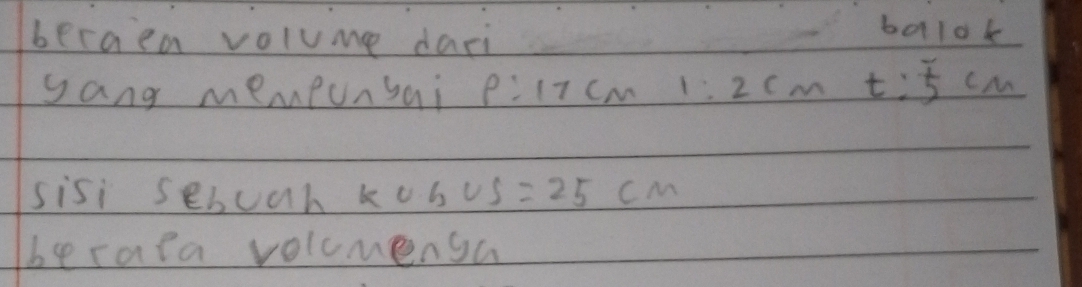 beraea volume dari balok
yang mempunyai P:17 cm l:2 cm t:5 cm
sisi sebuah kubus=25 cm
berapa volumenya